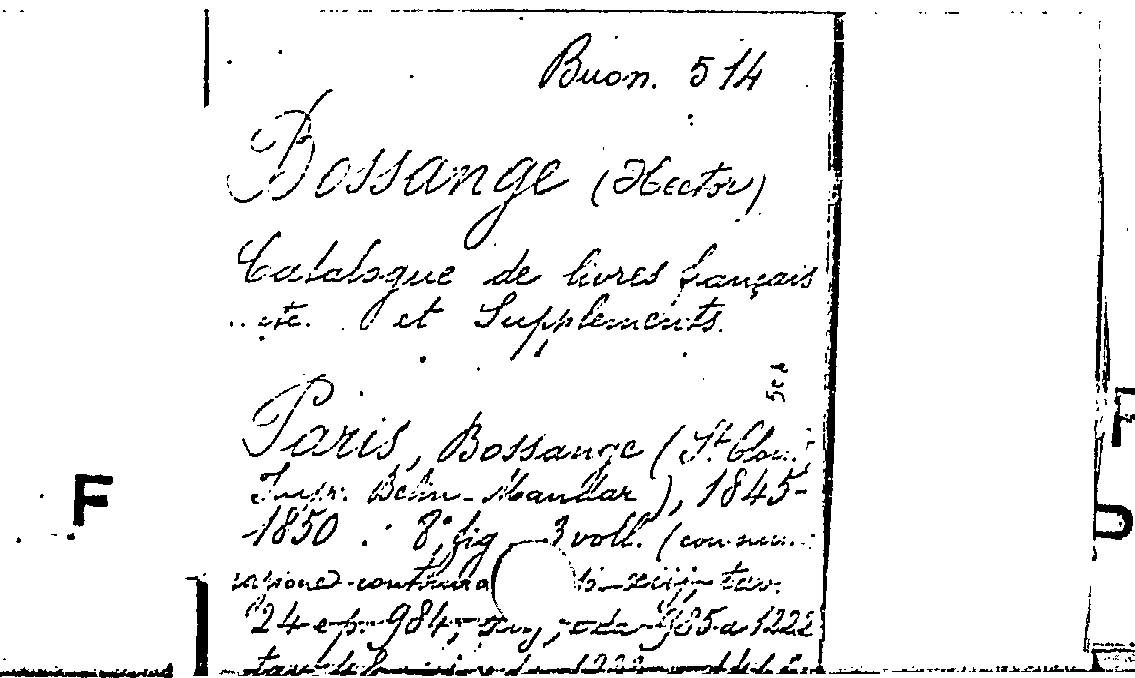 Buon. 514
Bossange (Hector)
Catalogue de livres français
etc. et Supplements.
5cb
Paris, Bossange (St Clou
Impr. Belin-Mandar), 1845-
1850. 8°, fig 3 voll. (con nume
razione continua xiij, tav.
24 e p. 984; da 985 a 1222
F
F
D